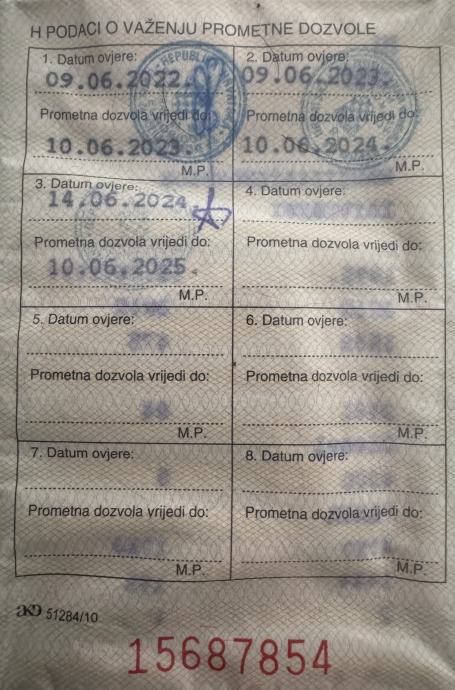 H PODACI O VAŽENJU PROMETNE DOZVOLE
1. Datum ovjere:
09.06.2022.
Prometna dozvola vrijedi do:
10.06.2023.
M.P.
2. Datum ovjere:
09.06.2023.
Prometna dozvola vrijedi do:
10.06.2024.
M.P.
3. Datum ovjere:
14.06.2024.
Prometna dozvola vrijedi do:
10.06.2025.
M.P.
4. Datum ovjere:
Prometna dozvola vrijedi do:
M.P.
5. Datum ovjere:
Prometna dozvola vrijedi do:
M.P.
6. Datum ovjere:
Prometna dozvola vrijedi do:
M.P.
7. Datum ovjere:
Prometna dozvola vrijedi do:
M.P.
8. Datum ovjere:
Prometna dozvola vrijedi do:
M.P.
AKD 51284/10
15687854